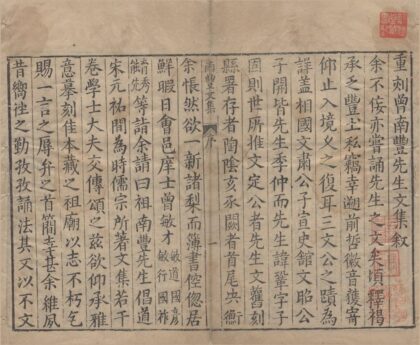 重刻曾南豐先生文集敘
余不佞亦嘗誦先生之文矣頃釋褐
承乏豐土私竊幸遡前哲徽音獲寄
仰止入境义之復耳三文公之蹟為
詳蓋相國文肅公子宣史館文昭公
子開皆先生季仲而先生諱鞏字子
固則世所推文定公者先生文舊刻
縣署存者蘭陰亥承闕者首尾央
余悵然欲一新諸梨而薄書倥偬居
鮮暇日會邑庠士曾敏才
等請余請曰祖南豐先生倡道
宋元祐間為時儒宗所著文集若干
卷學士大夫文傳頌之兹欲仰承雅
意摹刻隹本藏之祖廟以志不朽乞
賜一言之辱弁之首簡幸甚余維夙
昔嚮往之勤孜孜誦法其又以不文
南豐文集
序